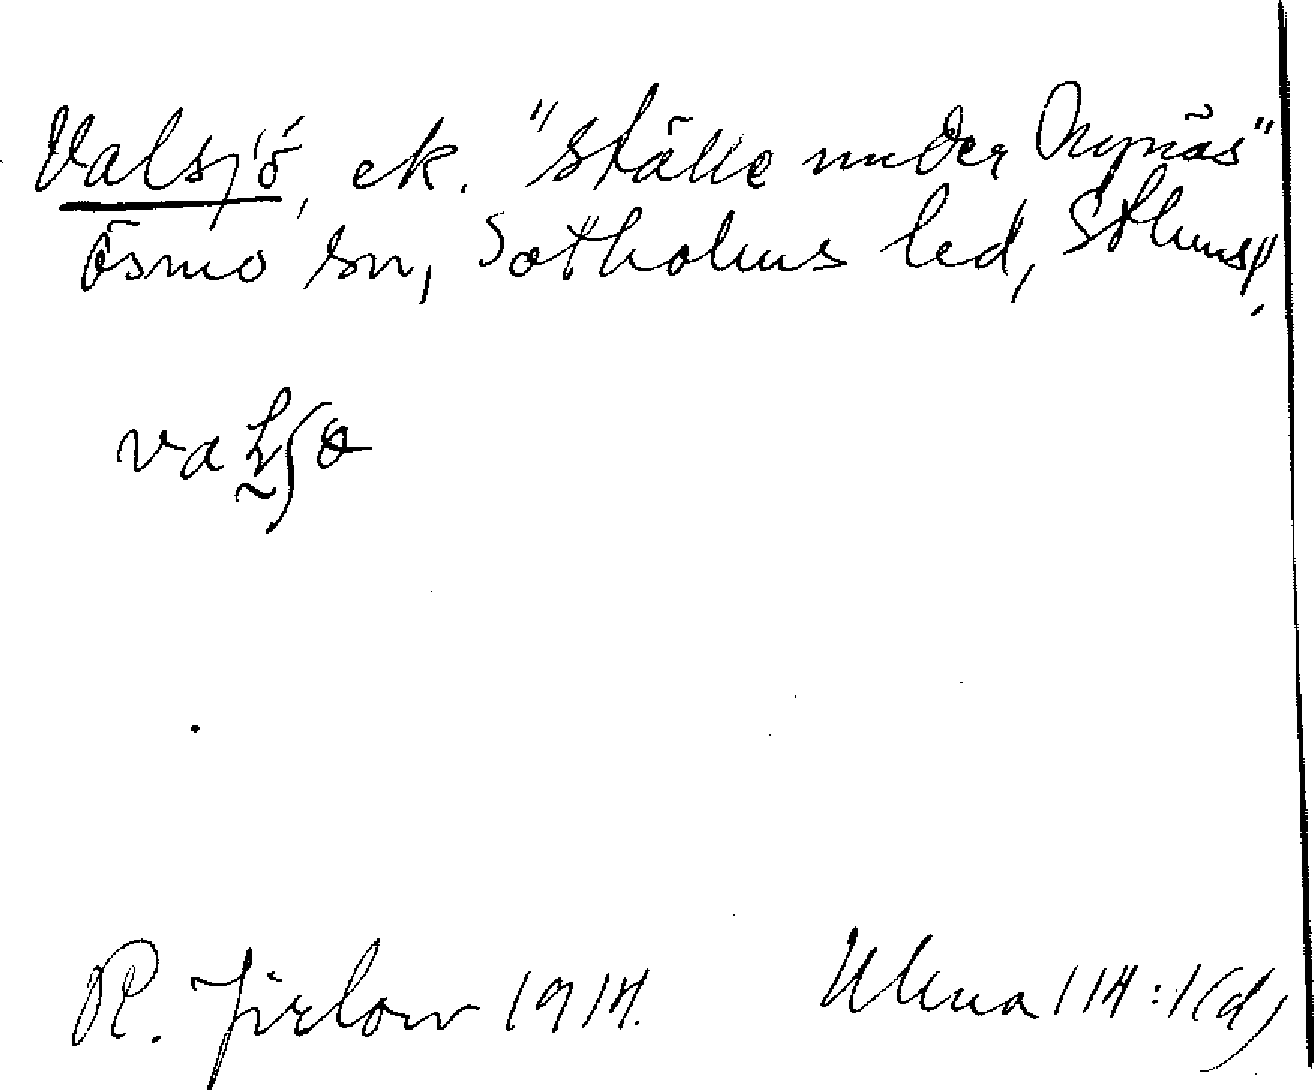 Valsjö, ek. "ställe under Nynäs"
Ösmo sn, Sotholms hd, Sthms l.
R. Jirlow 1914.
114:1(d)